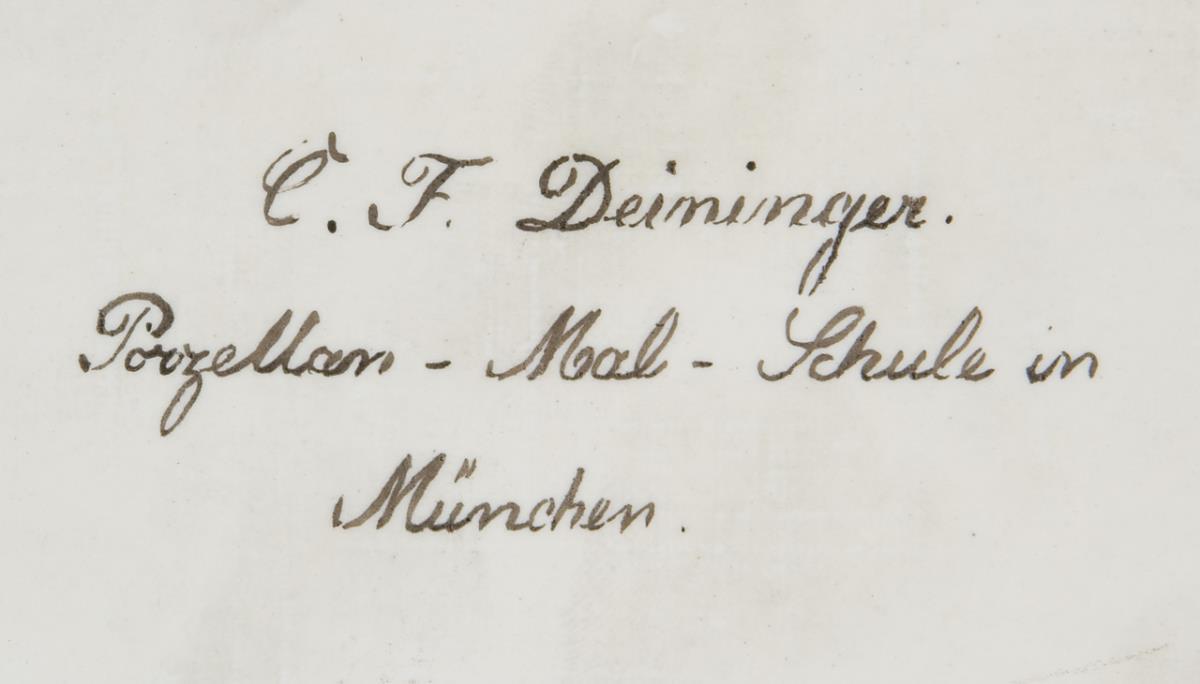 C. F. Deininger.
Porzellan - Mal - Schule in
München.